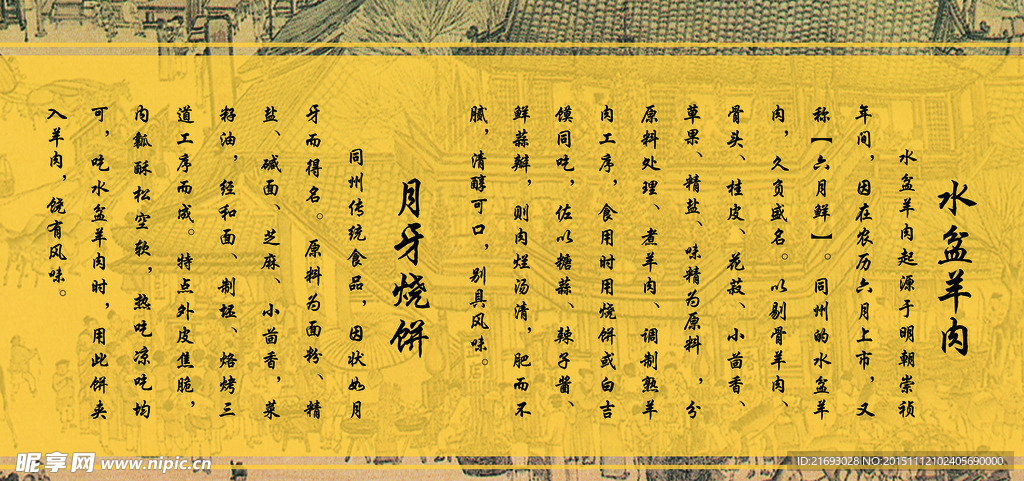 水盆羊肉
水盆羊肉起源于明朝崇祯
年间，因在农历六月上市，又
称【六月鲜】。同州的水盆羊
肉，久负盛名。以剔骨羊肉、
骨头、桂皮、花菽、小茴香、
草果、精盐、味精为原料，分
原料处理、煮羊肉、调制熟羊
肉工序，食用时用烧饼或白吉
馍同吃，佐以糖蒜、辣子酱、
鲜蒜辩，则肉烂汤清，肥而不
腻，清醇可口，别具风味。
月牙烧饼
同州传统食品，因状如月
牙而得名。原料为面粉、精
盐、碱面、芝麻、小茴香，菜
籽油，经和面、制坯、烙烤三
道工序而成。特点外皮焦脆，
内瓤酥松空软，热吃凉吃均
可，吃水盆羊肉时，用此饼夹
入羊肉，饶有风味。
昵享网 www.nipic.cn
ID:21693028 NO:20151112102405690000